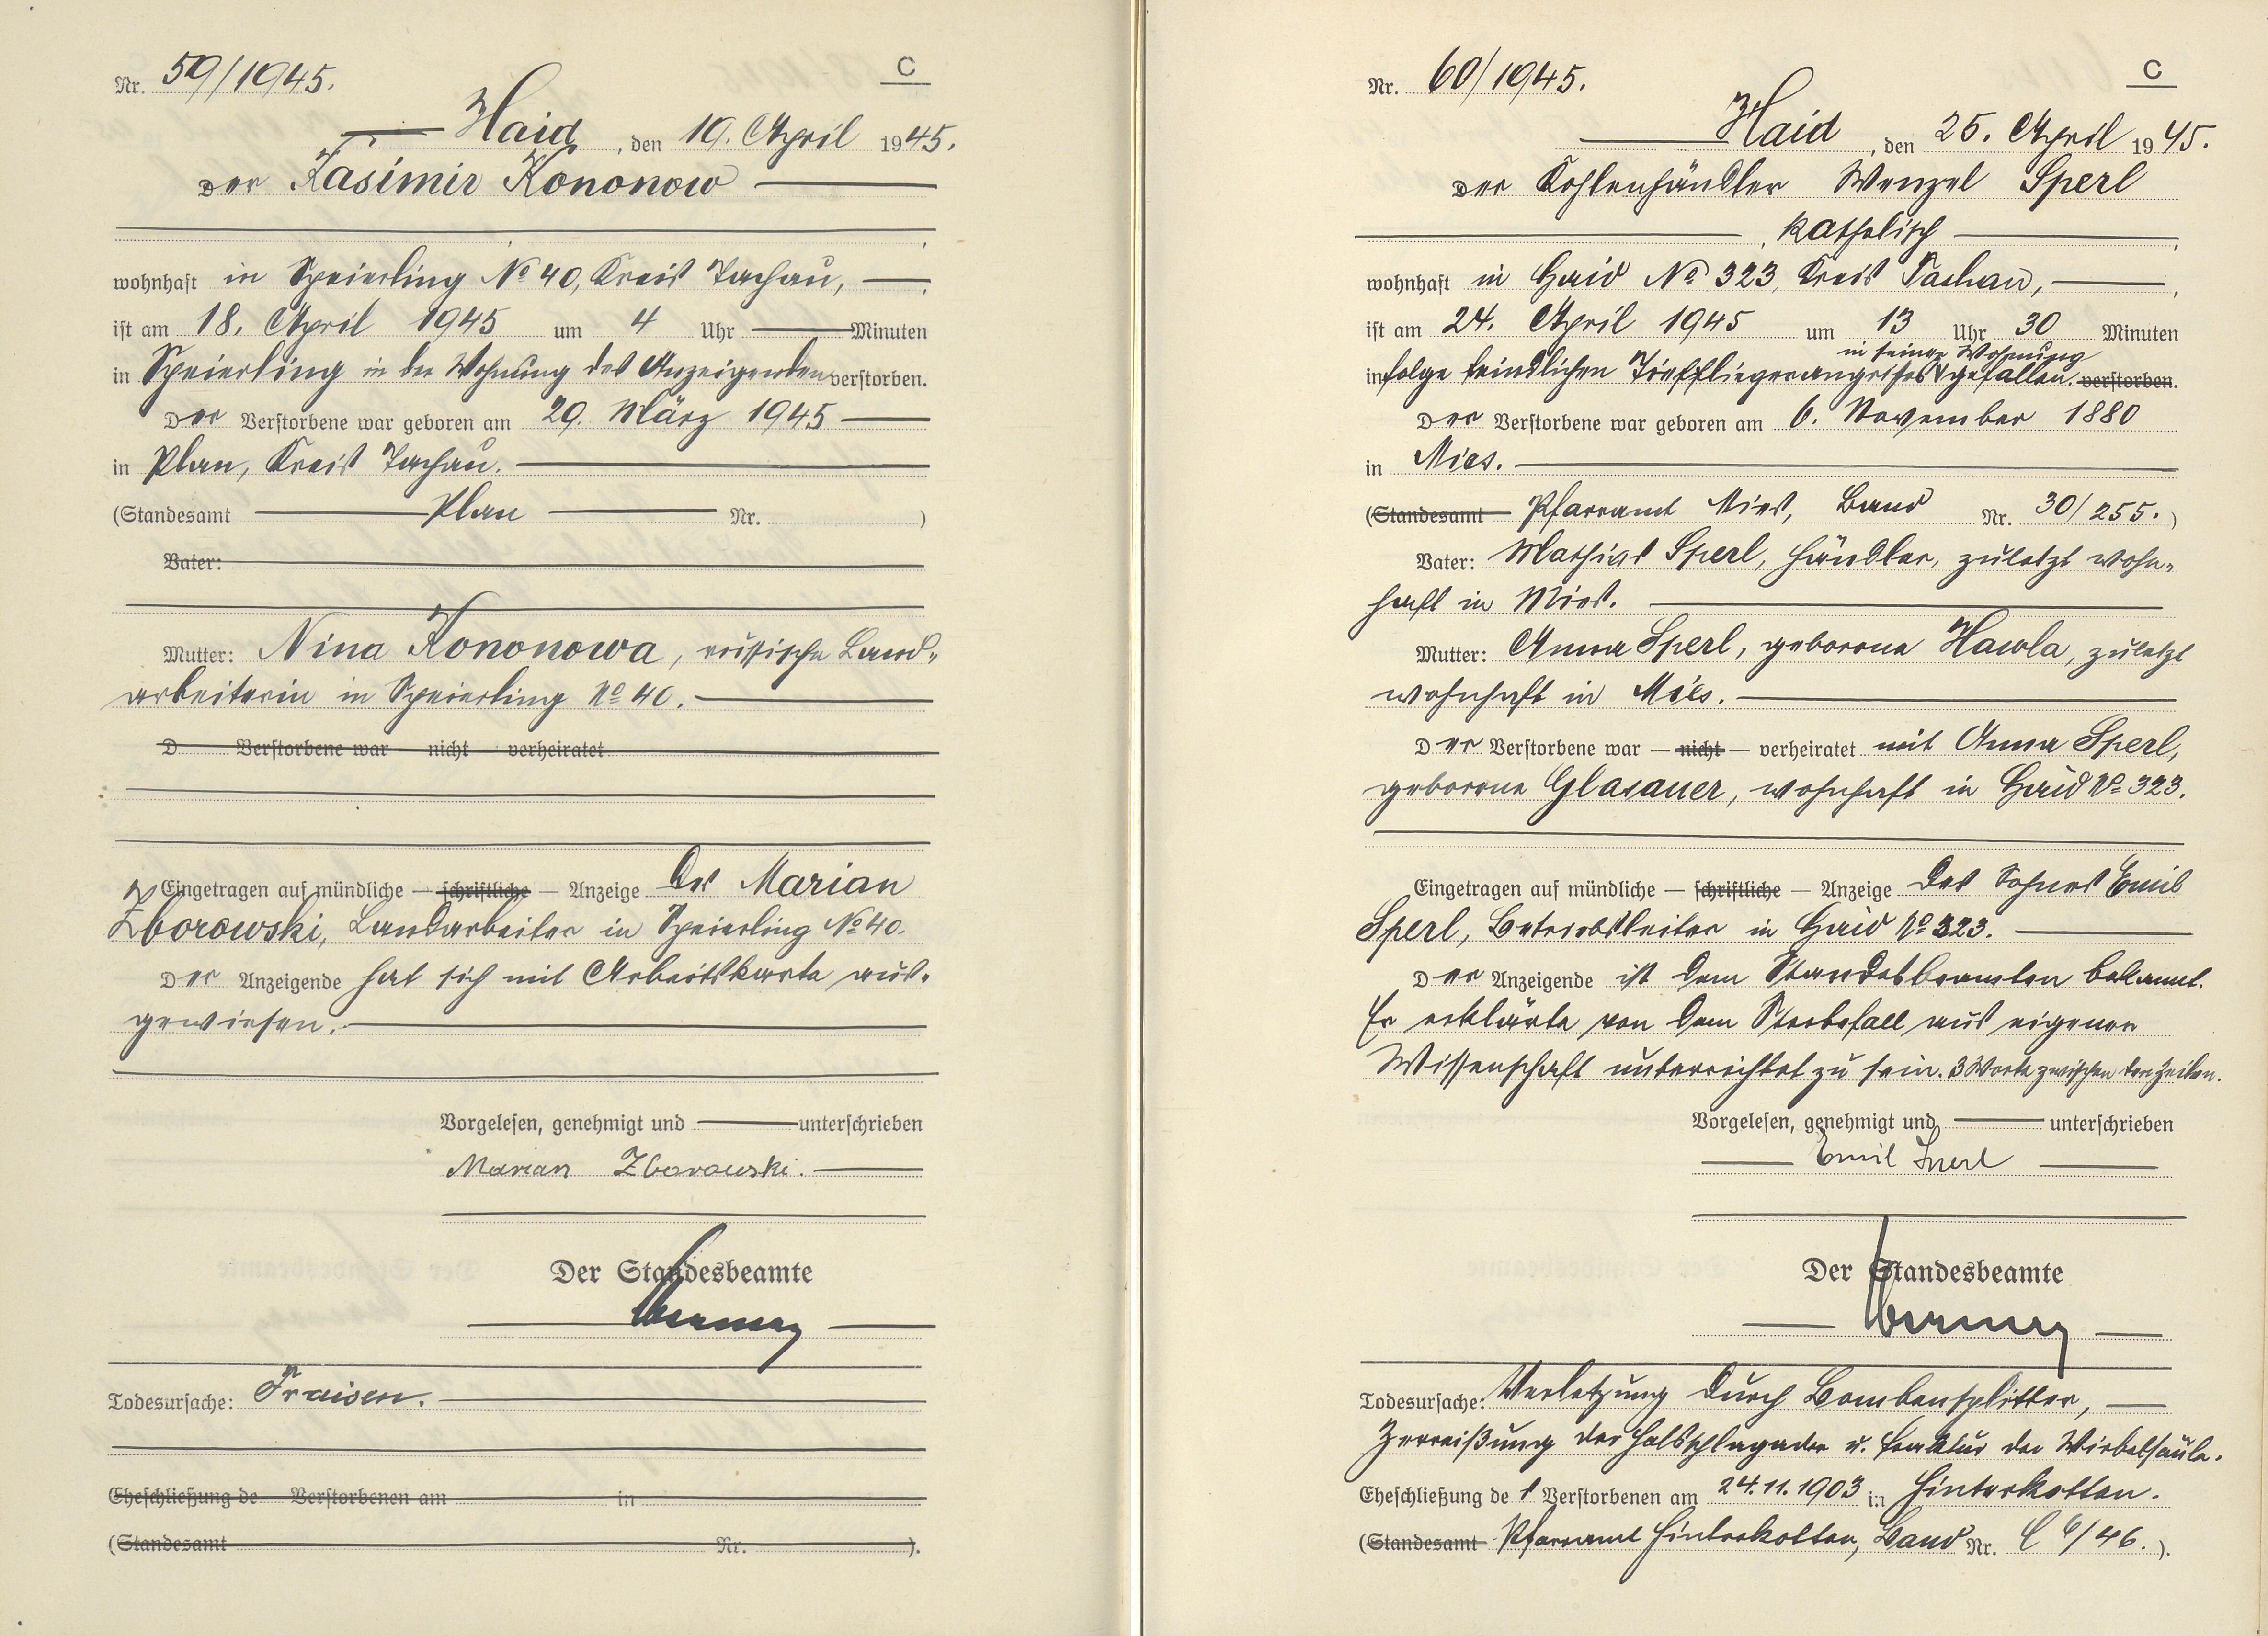 Nr. 59/1945.
C
Haid, den 19. April 1945.
Der Kasimir Kononow
wohnhaft in Speierling No 40, Kreis Tachau,
ist am 18. April 1945 um 4 Uhr Minuten
in Speierling in der Wohnung des Anzeigenden verstorben.
Der Verstorbene war geboren am 29. März 1945
in Plan, Kreis Tachau.
(Standesamt Plan Nr. )
Vater:
Mutter: Nina Kononowa, russische Land-
arbeiterin in Speierling No 40.
D Verstorbene war nicht verheiratet
Eingetragen auf mündliche – schriftliche – Anzeige des Marian
Zborowski, Landarbeiter in Speierling No 40.
Der Anzeigende hat sich mit Arbeitskarte aus-
gewiesen.
Vorgelesen, genehmigt und unterschrieben
Marian Zborowski.
Der Standesbeamte
Todesursache: Fraisen.
Eheschließung de Verstorbenen am in
(Standesamt Nr. ).
Nr. 60/1945.
C
Haid, den 25. April 1945.
Der Kohlenhändler Wenzel Sperl
katholisch
wohnhaft in Haid No 323, Kreis Tachau,
ist am 24. April 1945 um 13 Uhr 30 Minuten
in seiner Wohnung
infolge feindlichen Tieffliegerangriffes gefallen. verstorben.
Der Verstorbene war geboren am 6. November 1880
in Mies.
(Standesamt Pfarramt Mies, Band Nr. 30/255.)
Vater: Mathias Sperl, Händler, zuletzt wohn-
haft in Mies.
Mutter: Anna Sperl, geborene Hawla, zuletzt
wohnhaft in Mies.
Der Verstorbene war – nicht – verheiratet mit Anna Sperl,
geborene Glasauer, wohnhaft in Haid No 323.
Eingetragen auf mündliche – schriftliche – Anzeige des Sohnes Emil
Sperl, Betriebsleiter in Haid No 323.
Der Anzeigende ist dem Standesbeamten bekannt.
Er erklärte von dem Sterbefall aus eigener
Wissenschaft unterrichtet zu sein. 3 Worte zwischen den Zeilen.
Vorgelesen, genehmigt und unterschrieben
Emil Sperl
Der Standesbeamte
Todesursache: Verletzung durch Bombensplitter,
Zerreißung der Halsschlagader u. Fraktur der Wirbelsäule.
Eheschließung des Verstorbenen am 24.11.1903 in Hinterkotten.
(Standesamt Pfarramt Hinterkotten, Band Nr. C 6/46.).